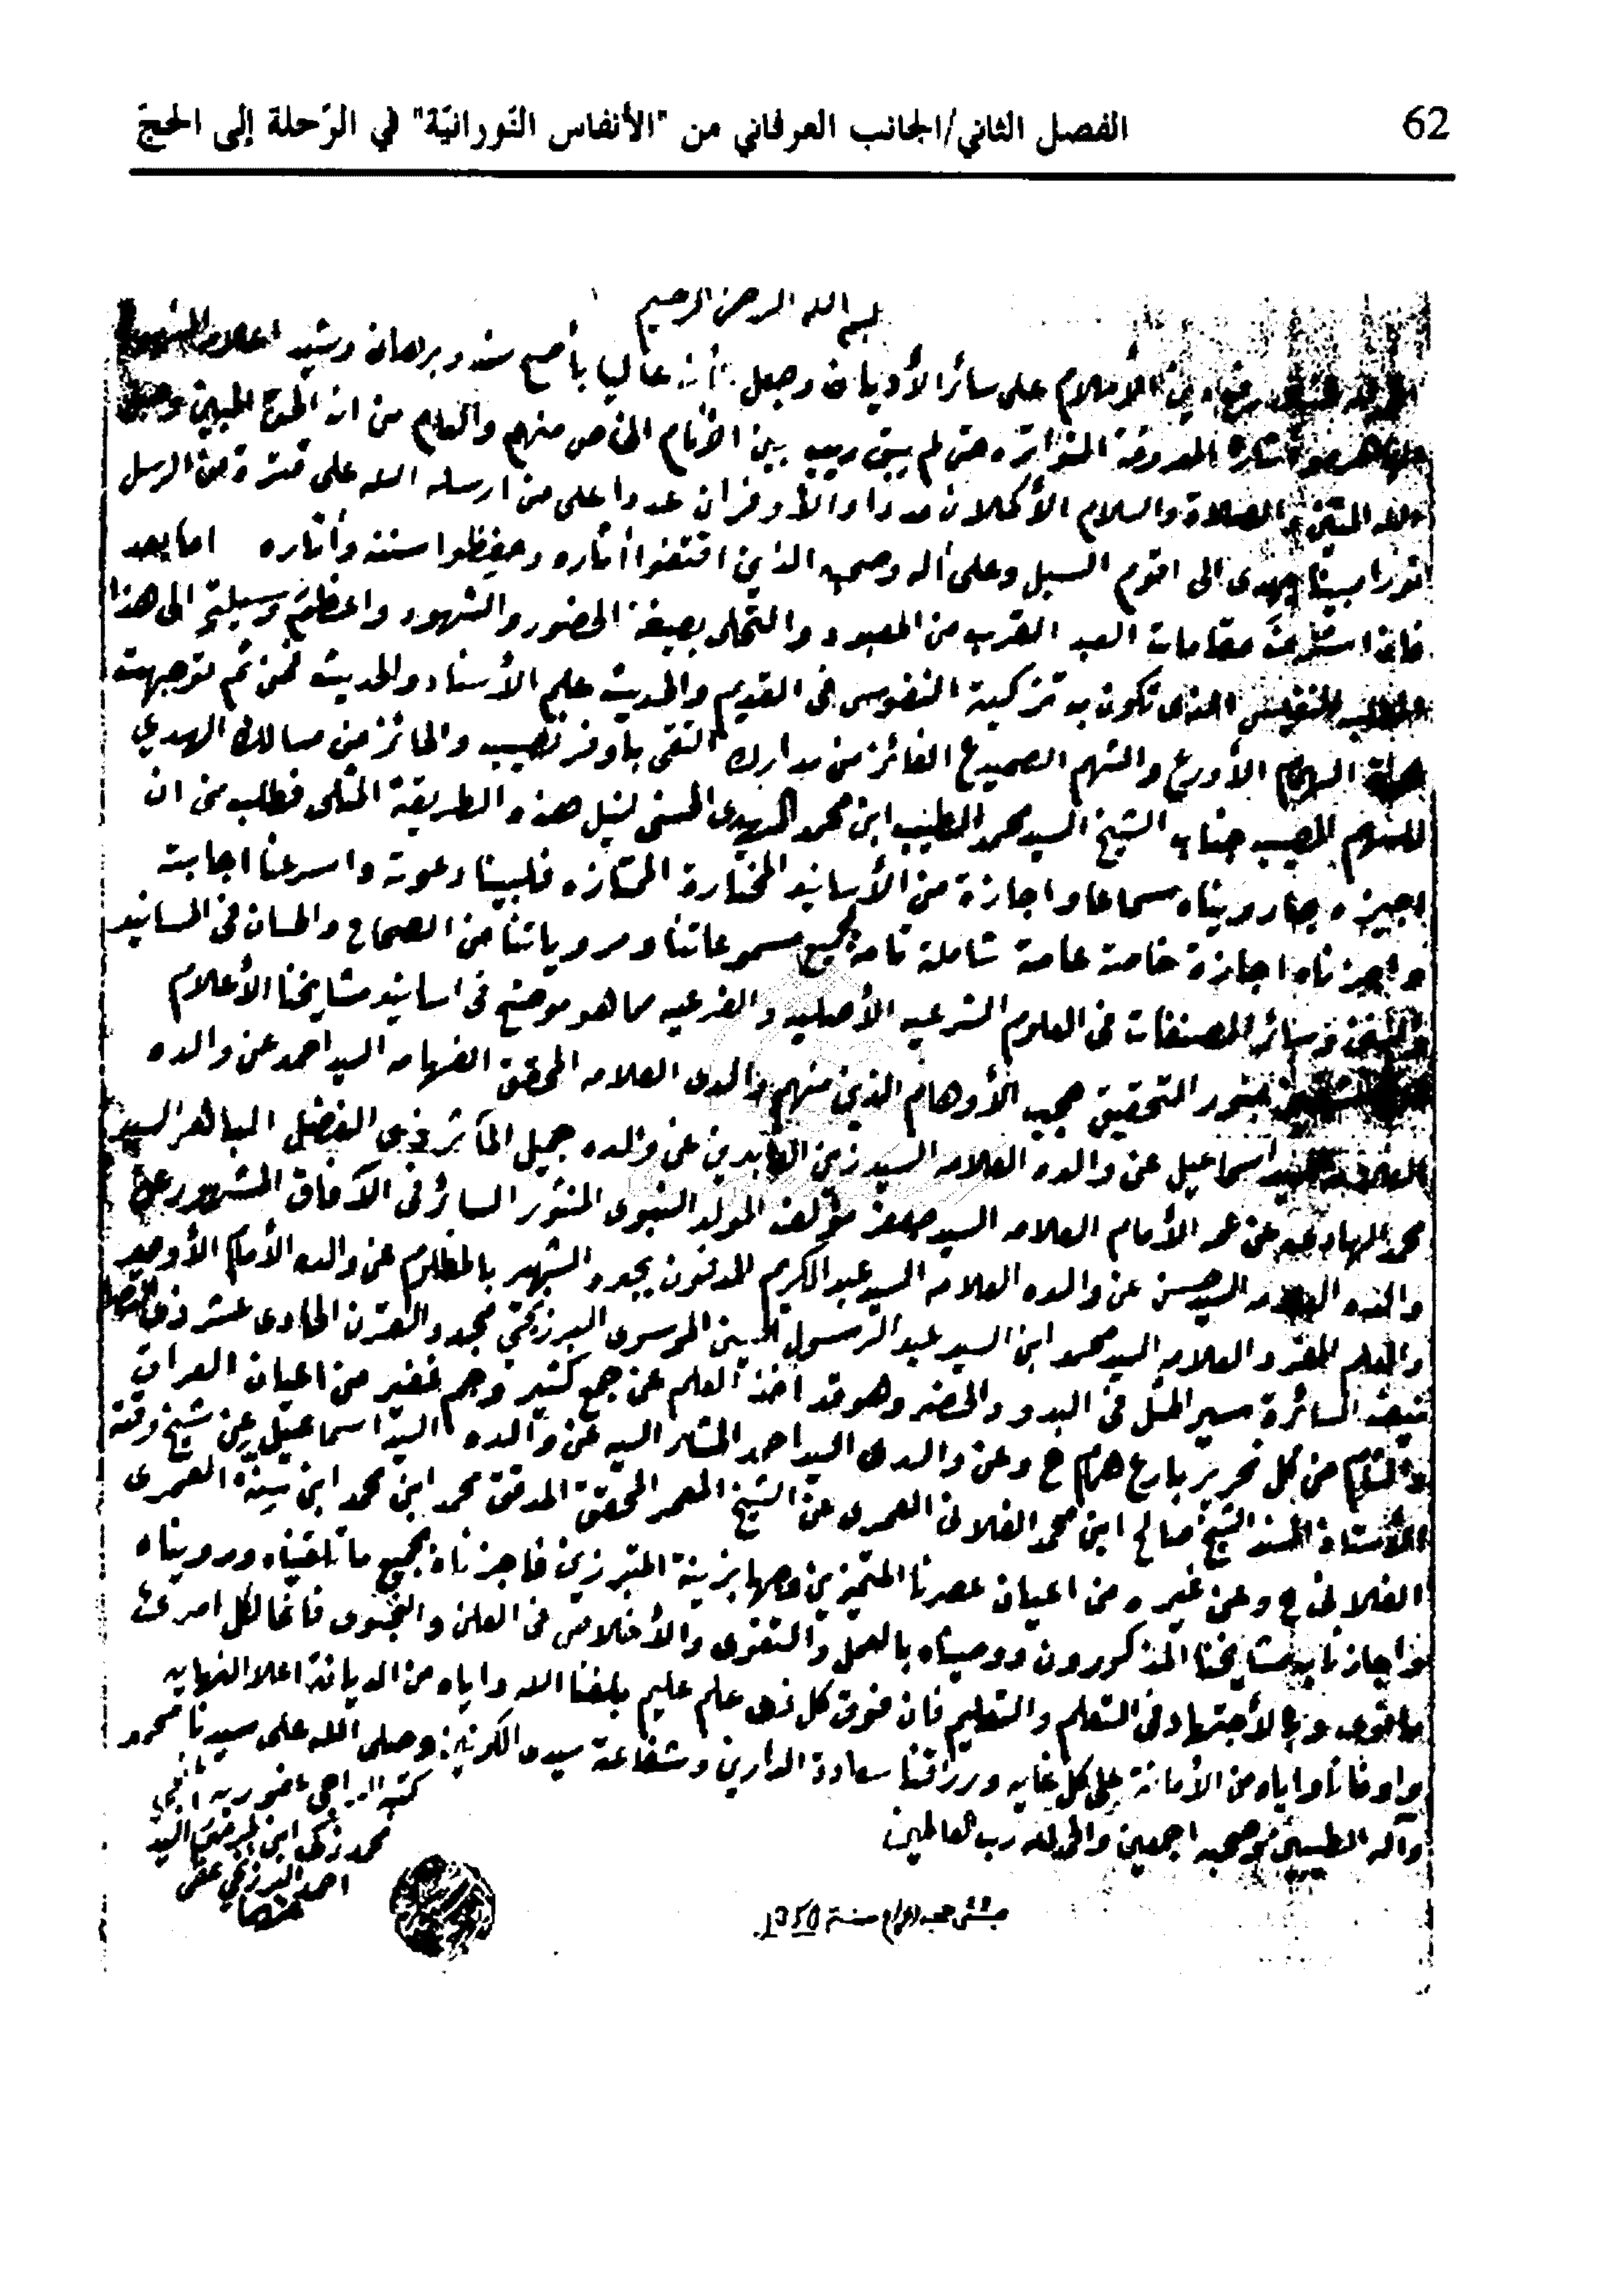 62
الفصل الثاني/الجانب العرفاني من "الأنفاس النورانيّة" في الرّحلة إلى الحجّ
بسم الله الرحمن الرحيم
الأسلام على سائر الأديان وجعل عاليا بأصح سند وبرهان وشيد اعلام
المعروفة المتواتره حتى لم يبق ريب بين الأنام الخاص منهم والعام من انه الحق المبين وحبل
الله المتين والصلاة والسلام الأكملان مددا والأوفران عددا على من ارسله الله على فترة من الرسل
نورا مبينا يهدى الى اقوم السبل وعلى أله وصحبه الذين اقتفوا أثاره وحفظوا سننه وأثاره اما بعد
فان مقامات العبد القرب من المعبود والتحلى بصبغة الحضور والشهود واعظم وسيلة الى هذا
النفيس الذى تكون به تزكية النفوس فى القديم والحديث علم الأسناد والحديث فمن ثم توجهت
الأورع والشهم الصميدع الفائز من مدارك التقى بأوفر نصيب والحائز من مسالك الهدي
السهم المصيب جناب الشيخ السيد محمد الطيب ابن محمد المهدى الحسنى لنيل هذه الطريقة المثلى فطلب من ان
اجيزه بما رويناه سماعا واجازة من الأسانيد المختارة الممتازه فلبينا دعوته واسرعنا اجابته
واجزناه اجازة خاصة عامة شاملة تامة بجميع مسموعاتنا ومروياتنا من الصحاح والحسان فى المسانيد
والسنن وسائر المصنفات فى العلوم الشرعيه الأصليه والفرعيه مما هو موضح فى اسانيد مشايخنا الأعلام
بنور التحقيق حجب الأوهام الذين منهم والدى العلامه المحقق الفهامه السيد احمد عن والده
العلامه السيد اسماعيل عن والده العلامه السيد زين العابدين عن والده جميل المآثر ذى الفضل الباهر السيد
محمد الهادى عن عمه الأمام العلامه السيد جعفر مؤلف المولد النبوى المنثور السائر فى الآفاق المشهور عن
والده العلامه السيد حسن عن والده العلامه السيد عبد الكريم المدفون بجدد الشهير بالمظلوم عن والده الأمام الأوحد
والعلم المفرد العلامه السيد محمد ابن السيد عبد الرسول الحسينى الموسوى البرزنجي مجدد القرن الحادى عشر ذى
السائرة سير المثل فى البدو والحضر وهو قد اخذ العلم عن جمع كثير وجم غفير من اعيان العراق
والشام من كل نحرير بارع همام ح وعن والدى السيد احمد المشار اليه عن والده السيد اسماعيل عن شيخ وقته
الأستاذ المسند الشيخ صالح ابن محمد الفلانى العمرى عن الشيخ المعمر المحقق المدقق محمد ابن محمد ابن سنة العمرى
الفلانى ح وعن غيره من اعيان عصرنا المتميزين بزينة المتبرزين فاجزناه بجميع ما تلقيناه ورويناه
واجازنا به مشايخنا المذكورون ووصيناه بالعمل والتقوى والأخلاص فى العلن والنجوى فانما لكل امرئ
ما نوى وبالأجتهاد فى التعلم والتعليم فان فوق كل ذى علم عليم بلغنا الله واياه من الديانة اعلا النهايه
واوفانا واياه من الأمانة على كل غايه ورزقنا سعادة الدارين وشفاعة سيد الكونين وصلى الله على سيدنا محمد
وآله الطيبين وصحبه اجمعين والحمد لله رب العالمين
كتبه الراجى عفو ربه
محمد زكى ابن السيد
احمد البرزنجي عفى
عنهما
سنة